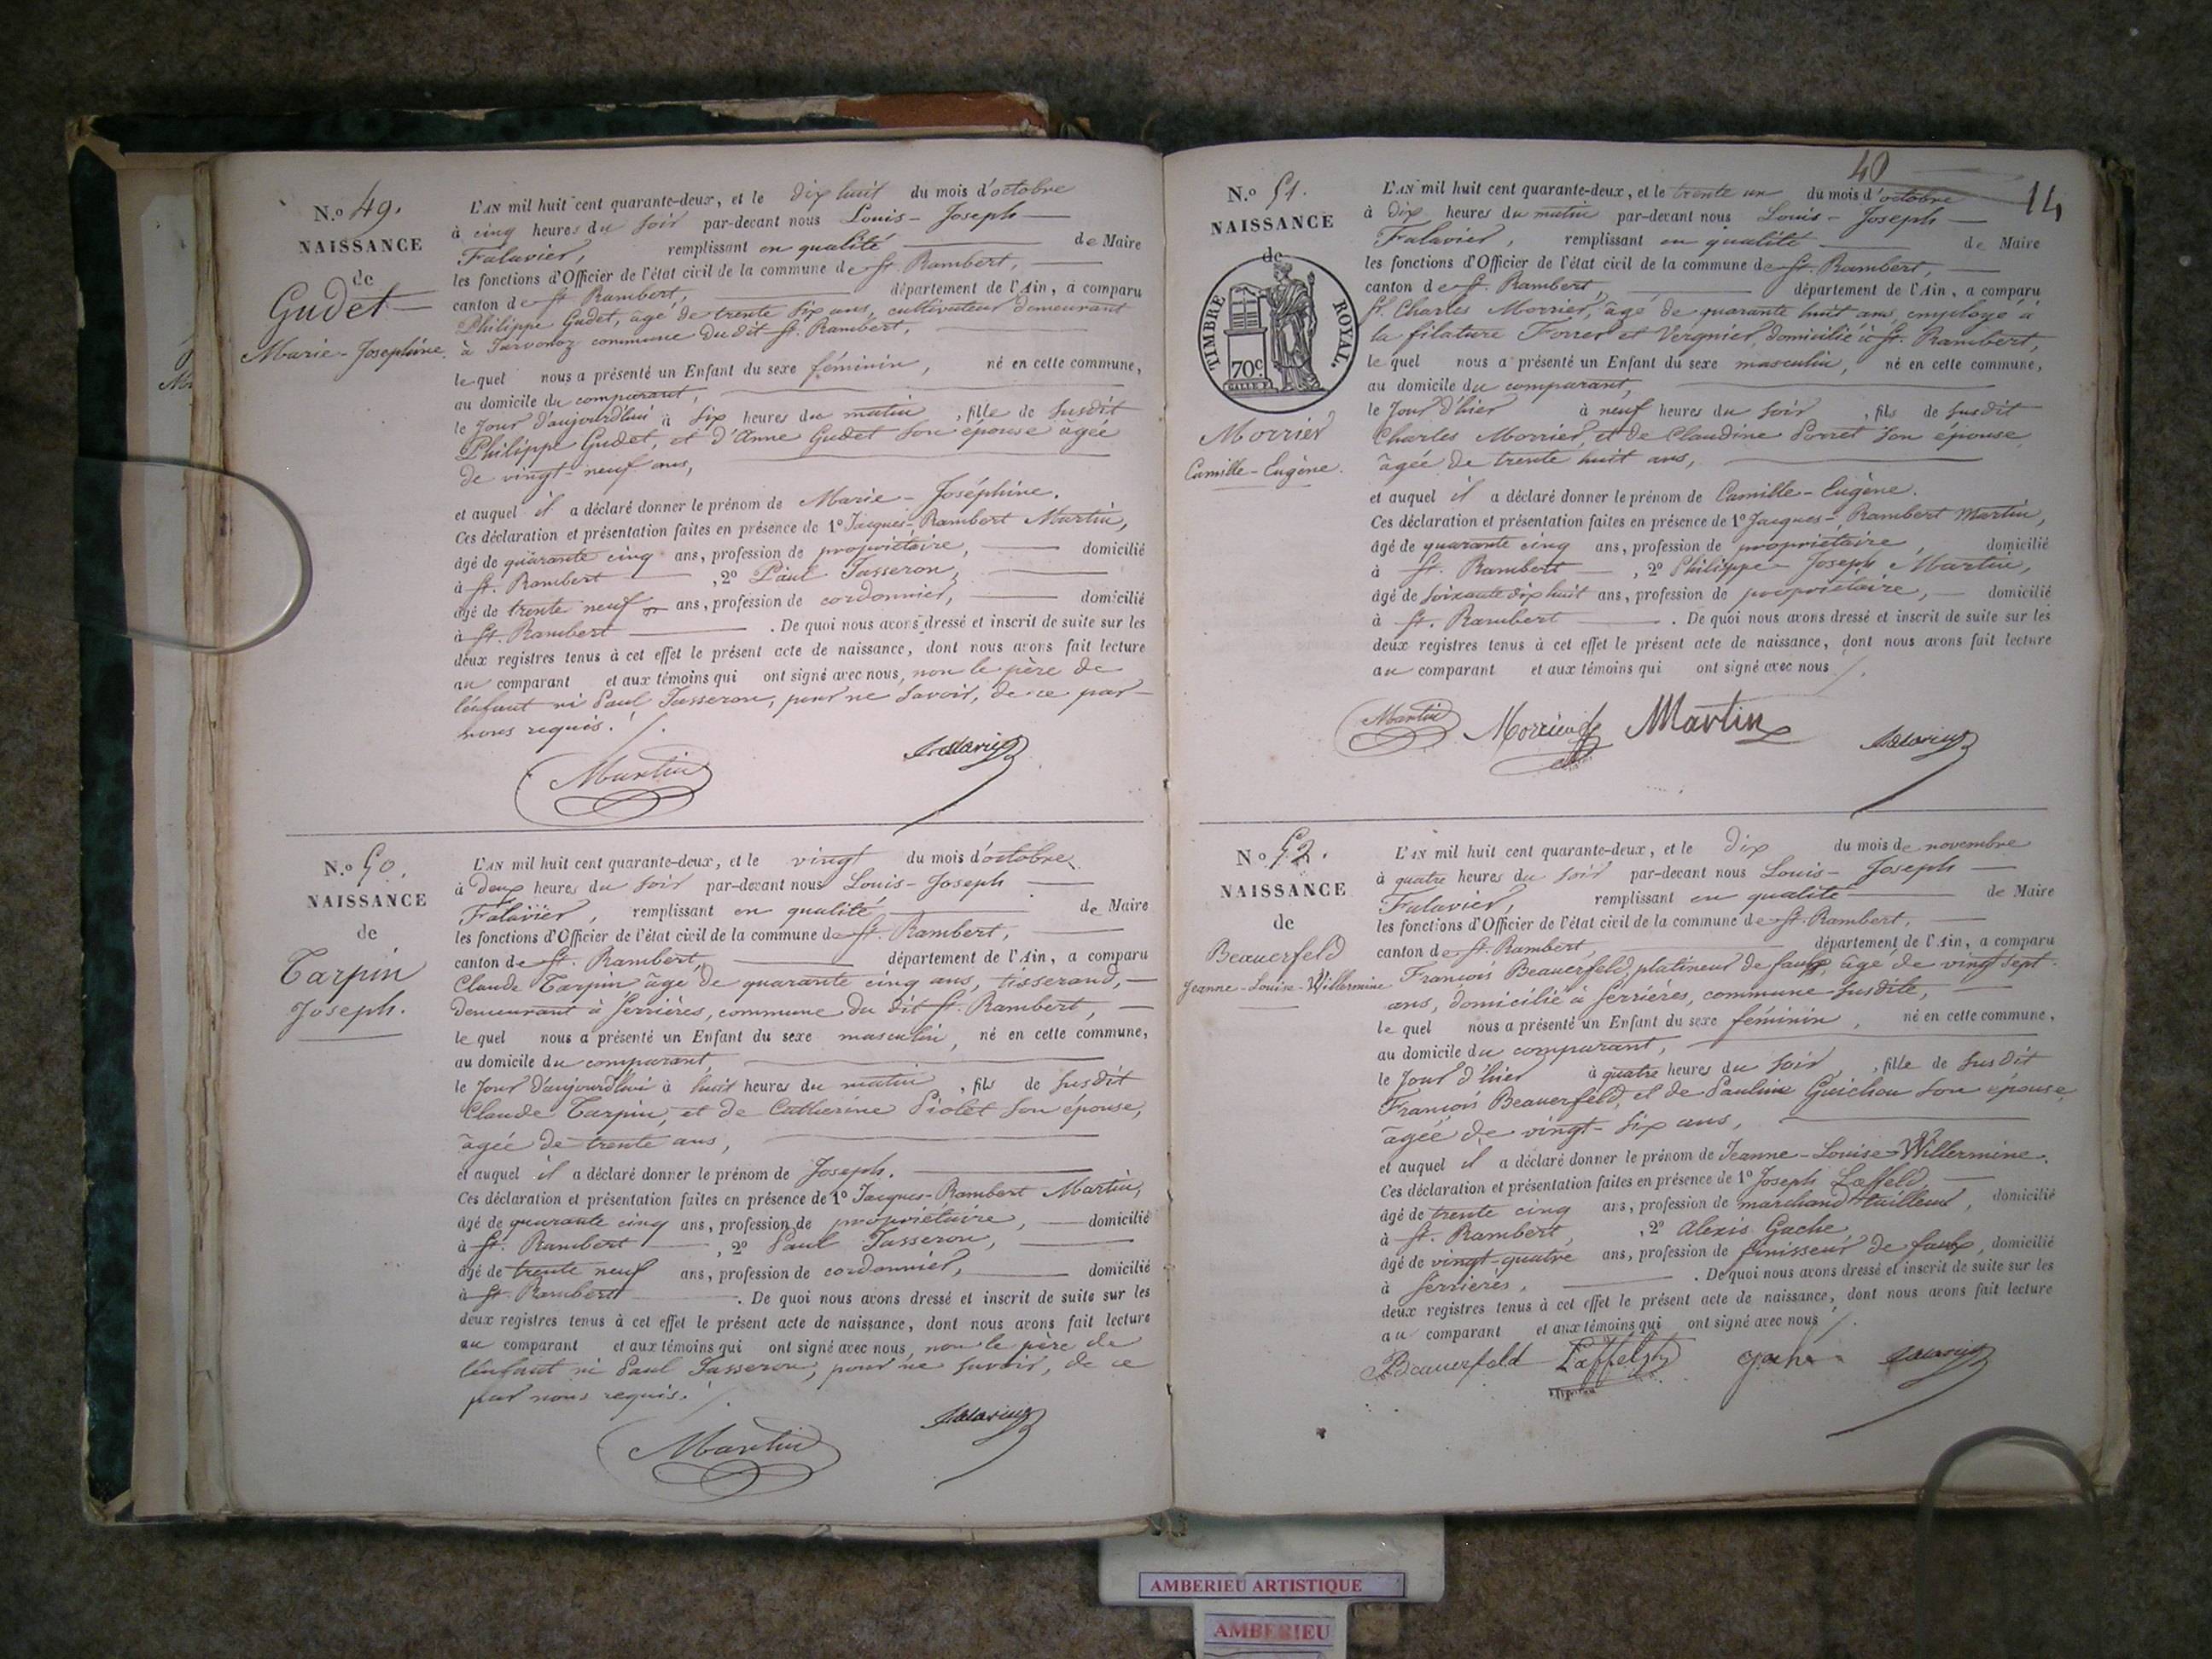 N.º 49.
NAISSANCE
de
Gudet
Marie-Joséphine.
L'AN mil huit cent quarante-deux, et le dix huit du mois d'octobre
à cinq heures du soir par-devant nous Louis-Joseph
Falavier, remplissant en qualité de Maire
les fonctions d'Officier de l'état civil de la commune de St. Rambert,
canton de St. Rambert, département de l'Ain, a comparu
Philippe Gudet, âgé de trente six ans, cultivateur demeurant
à Javornoz commune du dit St. Rambert,
le quel nous a présenté un Enfant du sexe féminin, né en cette commune,
au domicile du comparant,
le jour d'aujourd'hui à six heures du matin, fille de susdit
Philippe Gudet, et d'Anne Gudet son épouse âgée
de vingt-neuf ans,
et auquel il a déclaré donner le prénom de Marie-Joséphine.
Ces déclaration et présentation faites en présence de 1º Jacques-Rambert Martin,
âgé de quarante cinq ans, profession de propriétaire, domicilié
à St. Rambert, 2º Paul Tasseron,
âgé de trente neuf ans, profession de cordonnier, domicilié
à St. Rambert. De quoi nous avons dressé et inscrit de suite sur les
deux registres tenus à cet effet le présent acte de naissance, dont nous avons fait lecture
au comparant et aux témoins qui ont signé avec nous, non le père de
l'enfant ni Paul Tasseron, pour ne savoir, de ce par
nous requis. /.
Martin Falavier
N.º 50.
NAISSANCE
de
Tarpin
Joseph.
L'AN mil huit cent quarante-deux, et le vingt du mois d'octobre
à deux heures du soir par-devant nous Louis-Joseph
Falavier, remplissant en qualité de Maire
les fonctions d'Officier de l'état civil de la commune de St. Rambert,
canton de St. Rambert, département de l'Ain, a comparu
Claude Tarpin âgé de quarante cinq ans, tisserand,
demeurant à Serrières, commune du dit St. Rambert,
le quel nous a présenté un Enfant du sexe masculin, né en cette commune,
au domicile du comparant,
le jour d'aujourd'hui à huit heures du matin, fils de susdit
Claude Tarpin, et de Catherine Piolet son épouse,
âgée de trente ans,
et auquel il a déclaré donner le prénom de Joseph.
Ces déclaration et présentation faites en présence de 1º Jacques-Rambert Martin,
âgé de quarante cinq ans, profession de propriétaire, domicilié
à St. Rambert, 2º Paul Tasseron,
âgé de trente neuf ans, profession de cordonnier, domicilié
à St. Rambert. De quoi nous avons dressé et inscrit de suite sur les
deux registres tenus à cet effet le présent acte de naissance, dont nous avons fait lecture
au comparant et aux témoins qui ont signé avec nous, non le père de
l'enfant ni Paul Tasseron, pour ne savoir, de ce
par nous requis. /.
Martin Falavier
40
14
N.º 51.
NAISSANCE
de
TIMBRE ROYAL.
70c
Morrier
Camille-Eugène.
L'AN mil huit cent quarante-deux, et le trente un du mois d'octobre
à dix heures du matin par-devant nous Louis-Joseph
Falavier, remplissant en qualité de Maire
les fonctions d'Officier de l'état civil de la commune de St. Rambert,
canton de St. Rambert, département de l'Ain, a comparu
Sr. Charles Morrier, âgé de quarante huit ans, employé à
la filature Forrer et Vergnier, domicilié à St. Rambert,
le quel nous a présenté un Enfant du sexe masculin, né en cette commune,
au domicile du comparant,
le jour d'hier à neuf heures du soir, fils de susdit
Charles Morrier, et de Claudine Porret son épouse
âgée de trente huit ans,
et auquel il a déclaré donner le prénom de Camille-Eugène.
Ces déclaration et présentation faites en présence de 1º Jacques-Rambert Martin,
âgé de quarante cinq ans, profession de propriétaire, domicilié
à St. Rambert, 2º Philippe-Joseph Martin,
âgé de soixante dix huit ans, profession de propriétaire, domicilié
à St. Rambert. De quoi nous avons dressé et inscrit de suite sur les
deux registres tenus à cet effet le présent acte de naissance, dont nous avons fait lecture
au comparant et aux témoins qui ont signé avec nous /.
Martin Morrier Martin Falavier
Nº 52.
NAISSANCE
de
Beauerfeld
Jeanne-Louise-Willermine
L'AN mil huit cent quarante-deux, et le dix du mois de novembre
à quatre heures du soir par-devant nous Louis-Joseph
Falavier, remplissant en qualité de Maire
les fonctions d'Officier de l'état civil de la commune de St. Rambert,
canton de St. Rambert, département de l'Ain, a comparu
François Beauerfeld, platineur de faulx, âgé de vingt sept
ans, domicilié à Serrières, commune susdite,
le quel nous a présenté un Enfant du sexe féminin, né en cette commune,
au domicile du comparant,
le jour d'hier à quatre heures du soir, fille de susdit
François Beauerfeld, et de Pauline Guichon son épouse
âgée de vingt-six ans,
et auquel il a déclaré donner le prénom de Jeanne-Louise-Willermine.
Ces déclaration et présentation faites en présence de 1º Joseph Læffeld,
âgé de trente cinq ans, profession de marchand tailleur, domicilié
à St. Rambert, 2º Alexis Gache
âgé de vingt-quatre ans, profession de finisseur de faulx, domicilié
à Serrières. De quoi nous avons dressé et inscrit de suite sur les
deux registres tenus à cet effet le présent acte de naissance, dont nous avons fait lecture
au comparant et aux témoins qui ont signé avec nous /.
Beauerfeld Falavier
AMBERIEU ARTISTIQUE
AMBERIEU